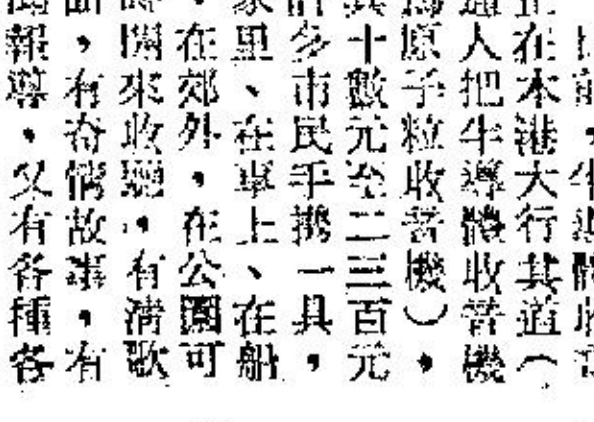 在本港大行其道（
人把牛導體收音機
原子粒收音機），
十數元至二三百元
多市民手攜一具，
里、在車上、在船
在郊外，在公園可
開來收聽，有清歌
，有奇情故事，有
報導，又有各種各